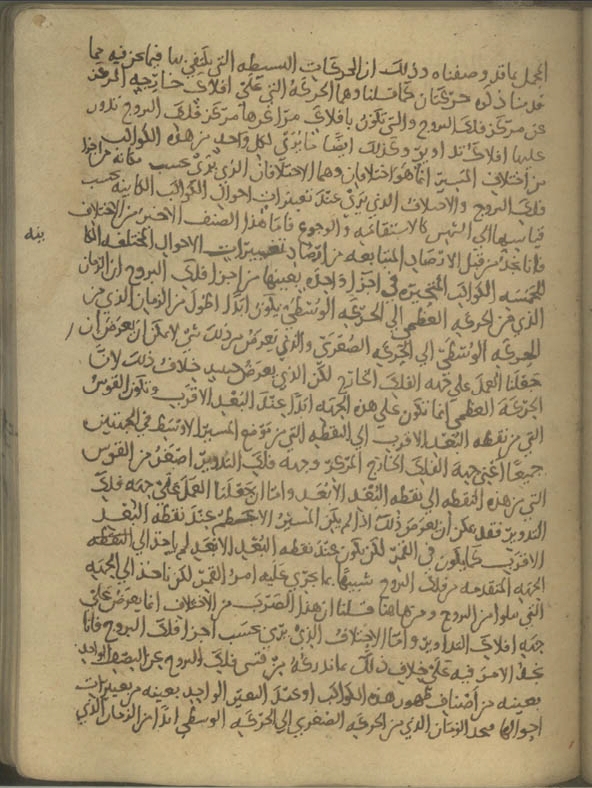 المجمل بما قد وصفناه وذلك ان الحركات البسيطه التي يكتفي بها فيما نحن فيه مما
قدمنا ذكره حركتان كما قلنا وهما الحركه التي على افلاك خارجه المركز
عن مركز فلك البروج والتي تكون بافلاك مراكزها مركز فلك البروج تدور
عليها افلاك تداوير وكذلك ايضا ما يرى لكل واحد من هذه الكواكب
من اختلاف المسير انما هو اختلافان وهما الاختلاف الذي يرى بحسب مكانه من اجزا
فلك البروج والاختلاف الذي يرى عند تغييرات احوال الكواكب الكاينه بحسب
قياسها الى الشمس كالاستقامه والرجوع فاما هذا الصنف الاخير من الاختلاف
فانا نجد من قبل الارصاد المتتابعه من ارصاد تغييرات الاحوال المختلفه الكا
ينه
للخمسه الكواكب المتحيره في اجزا واحده بعينها من اجزا فلك البروج ان الزمان
الذي من الحركه العظمى الى الحركه الوسطى يكون ابدا اطول من الزمان الذي من
الحركه الوسطى الى الحركه الصغرى والذي يعرض من ذلك شي لا يمكن ان يعرض ان
جعلنا العمل على جهه الفلك الخارج لكن الذي يعرض حينيذ خلاف ذلك لان
الحركه العظمى انما تكون على هذه الجهه ابدا عند البعد الاقرب وتكون القوس
التي من نقطه البعد الاقرب الى النقطه التي من موضع المسير الاوسط في الجهتين
جميعا اعني جهه الفلك الخارج المركز وجهه فلك التدوير اصغر من القوس
التي من هذه النقطه الى نقطه البعد الابعد واما ان جعلنا العمل على جهه فلك
التدوير فقد يمكن ان يعرض ذلك اذا لم يكن المسير الاعظم عند نقطه البعد
الاقرب كما يكون في القمر لكن يكون عند نقطه البعد الابعد لم ياخذ الى النقطه
الجهه المتقدمه من فلك البروج شبيها بما يجري عليه امر القمر لكن ياخذ الى الجهه
التي تتلوا من البروج ومن هاهنا قلنا ان هذا الضرب من الاختلاف انما يعرض على
جهه افلاك التداوير واما الاختلاف الذي يرى بحسب اجزا فلك البروج فانا
نجد الامر فيه على خلاف ذلك بما ندركه من قسي فلك البروج عن البعد الواحد
بعينه من اصناف ظهور هذه الكواكب او عند التغير الواحد بعينه من تغييرات
احوالها فنجد الزمان الذي من الحركه الصغرى الى الحركه الوسطى ابدا من الزمان الذي